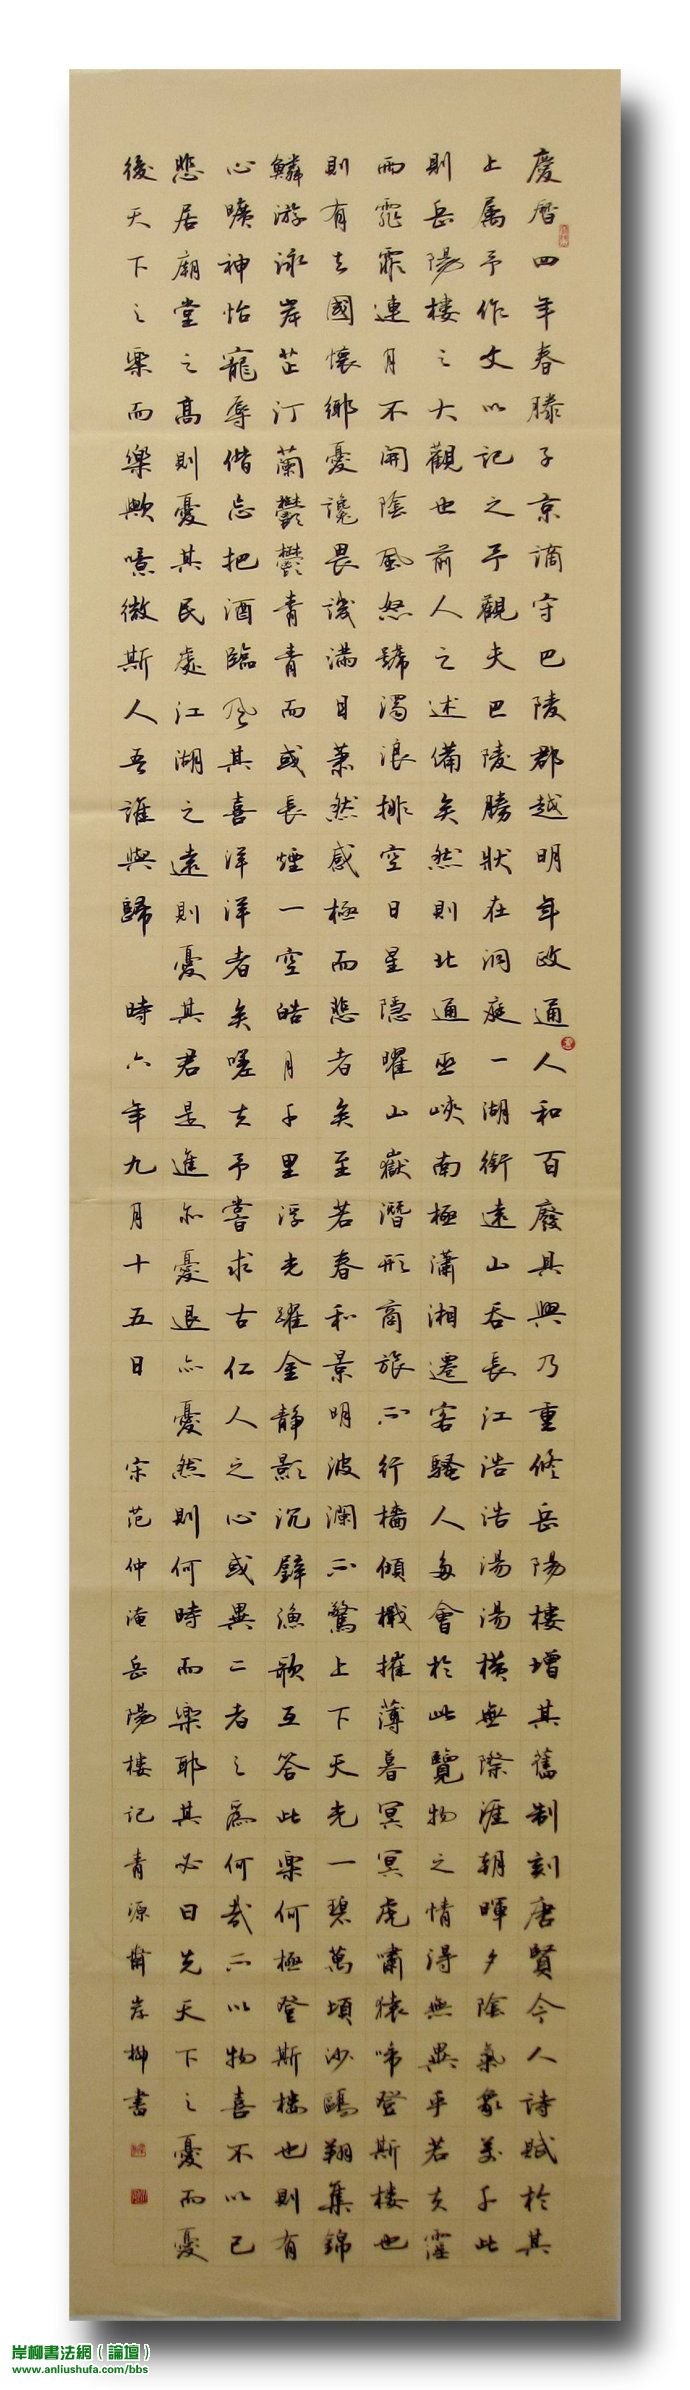 慶曆四年春滕子京謫守巴陵郡越明年政通人和百廢具興乃重修岳陽樓增其舊制刻唐賢今人詩賦於其
上属予作文以記之予觀夫巴陵勝狀在洞庭一湖銜遠山吞長江浩浩湯湯橫無際涯朝暉夕陰氣象萬千此
則岳陽樓之大觀也前人之述備矣然則北通巫峽南極瀟湘遷客騷人多會於此覽物之情得無異乎若夫霪
雨霏霏連月不開陰風怒號濁浪排空日星隱曜山嶽潛形商旅不行檣傾檝摧薄暮冥冥虎嘯猿啼登斯樓也
則有去國懷鄉憂讒畏譏滿目蕭然感極而悲者矣至若春和景明波瀾不驚上下天光一碧萬頃沙鷗翔集錦
鱗游泳岸芷汀蘭鬱鬱青青而或長煙一空皓月千里浮光躍金静影沉璧漁歌互答此樂何極登斯樓也則有
心曠神怡寵辱偕忘把酒臨風其喜洋洋者矣嗟夫予嘗求古仁人之心或異二者之爲何哉不以物喜不以己
悲居廟堂之高則憂其民處江湖之遠則憂其君是進亦憂退亦憂然則何時而樂耶其必曰先天下之憂而憂
後天下之樂而樂歟噫微斯人吾誰與歸 時六年九月十五日 宋范仲淹岳陽樓記青源蕭岸柳書
岸柳書法網（論壇）
www.anliushufa.com/bbs